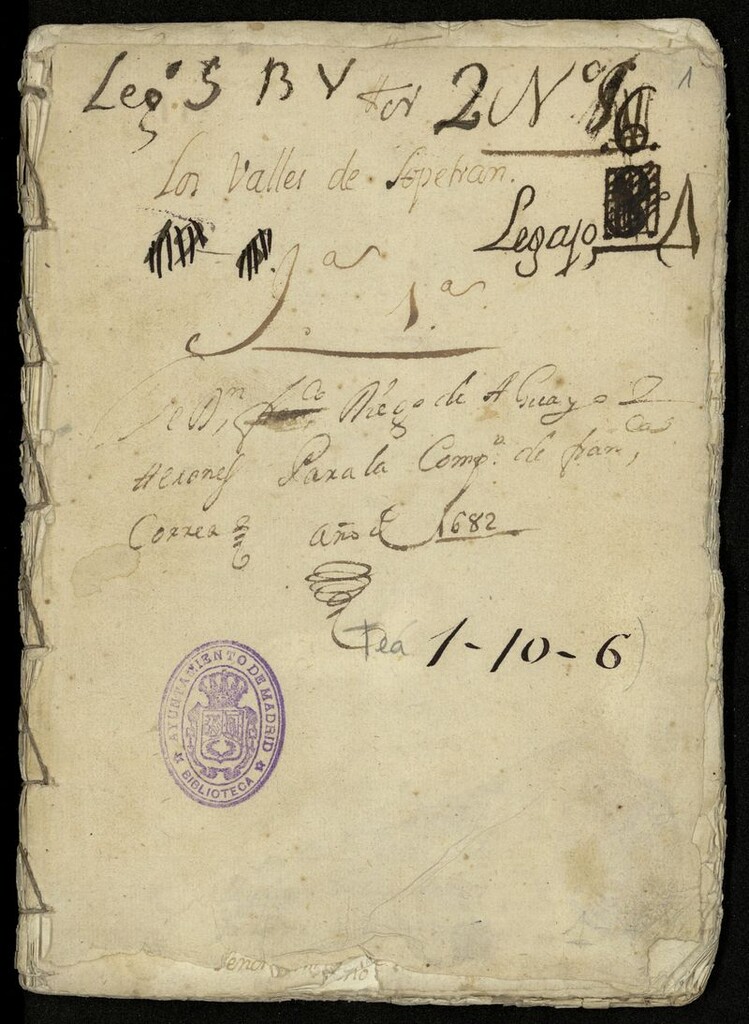 Leg.º 5 B V 2 Nº 6
1
Los Valles de Sopetran.
Legajo, 1
J.ª 1.ª
De D.n Diego de Aguayo
Para la Comp.ª de fran,co
Correa año de 1682
Tea 1-10-6)
AYUNTAMIENTO DE MADRID
BIBLIOTECA